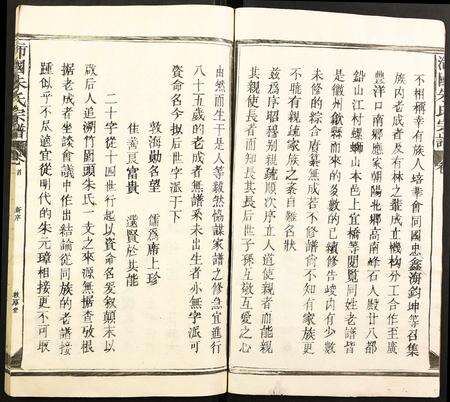 不相稱幸有族人培華會同國忠鑫海鈞坤等召集
族內老成者及有林之輩成立機构分工合作至廣
豐洋口南鄉應家朝陽北鄉高南峰石人殿廿八都
鉛山江村螺螄山本邑上宜橋等閱覧同姓老譜皆
是徽州歙縣而來的多數的已續修告峻內有少數
未修的綜合府纂無成若不修譜會不知有家族更
不聴有親疏家族之紊自難名狀
兹為序昭穆别親疏順次序立人道使親者而能親
其親使長者而知長其長后世子孫互敬互愛之心
由然而生于是人等毅然協議家譜之修急宜進行
八十五歲的老成者無譜系未出生者亦無字派可
資命名今拟后世字派于下
敦海勛名望 儒為席上珍
佳善良富貴 選賢於其能
二十字從十四世行起以資命名爰叙顛末以
啟后人追溯竹園頭朱氏一支之來源無據查攷根
据老成者坐談會議中作出結論從同族的老譜接
踵似乎不尽適宜從明代的朱元璋相接更不可取
沛國朱氏宗譜
卷首
新序
敦厚堂